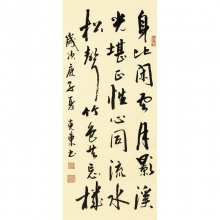 身比闲云月影溪
光堪正性心同流水
松聲竹色共忘機
歲次庚子夏東书